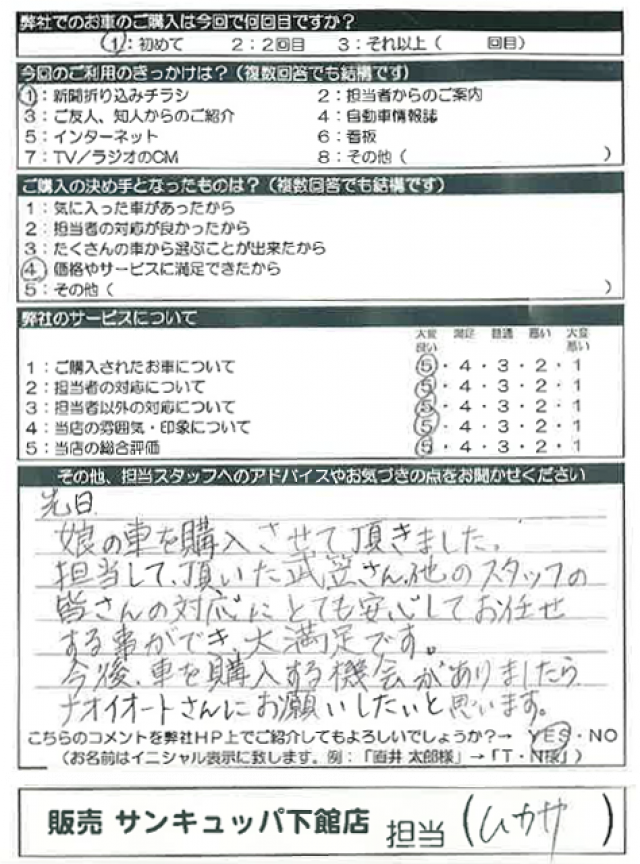 弊社でのお車のご購入は今回で何回目ですか？
1：初めて　2：2回目　3：それ以上（　　回目）
今回のご利用のきっかけは？（複数回答でも結構です）
1：新聞折り込みチラシ　2：担当者からのご案内
3：ご友人、知人からのご紹介　4：自動車情報誌
5：インターネット　6：看板
7：TV／ラジオのCM　8：その他（　　）
ご購入の決め手となったものは？（複数回答でも結構です）
1：気に入った車があったから
2：担当者の対応が良かったから
3：たくさんの車から選ぶことが出来たから
4：価格やサービスに満足できたから
5：その他（　　）
弊社のサービスについて
大変良い　満足　普通　悪い　大変悪い
1：ご購入されたお車について　5・4・3・2・1
2：担当者の対応について　5・4・3・2・1
3：担当者以外の対応について　5・4・3・2・1
4：当店の雰囲気・印象について　5・4・3・2・1
5：当店の総合評価　5・4・3・2・1
その他、担当スタッフへのアドバイスやお気づきの点をお聞かせください
先日
娘の車を購入させて頂きました。
担当して、頂いた武笠さん、他のスタッフの
皆さんの対応にとても安心してお任せ
する事ができ、大満足です。
今後、車を購入する機会がありましたら
ナオイオートさんにお願いしたいと思います。
こちらのコメントを弊社HP上でご紹介してもよろしいでしょうか？→ YES・NO
（お名前はイニシャル表示に致します。例：「直井 太郎様」→「T・N様」）
販売 サンキュッパ下館店 担当（ひかさ）